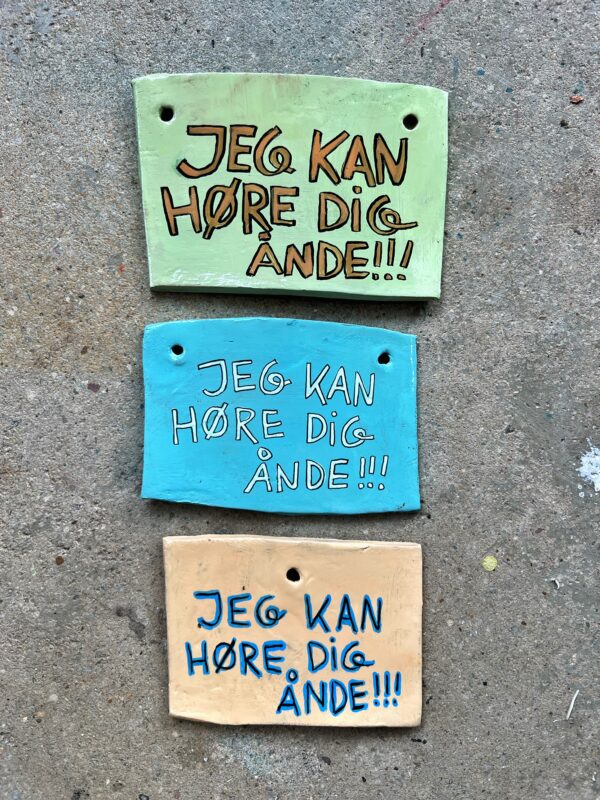 JEG KAN
HØRE DIG
ÅNDE!!!
JEG KAN
HØRE DIG
ÅNDE!!!
JEG KAN
HØRE DIG
ÅNDE!!!